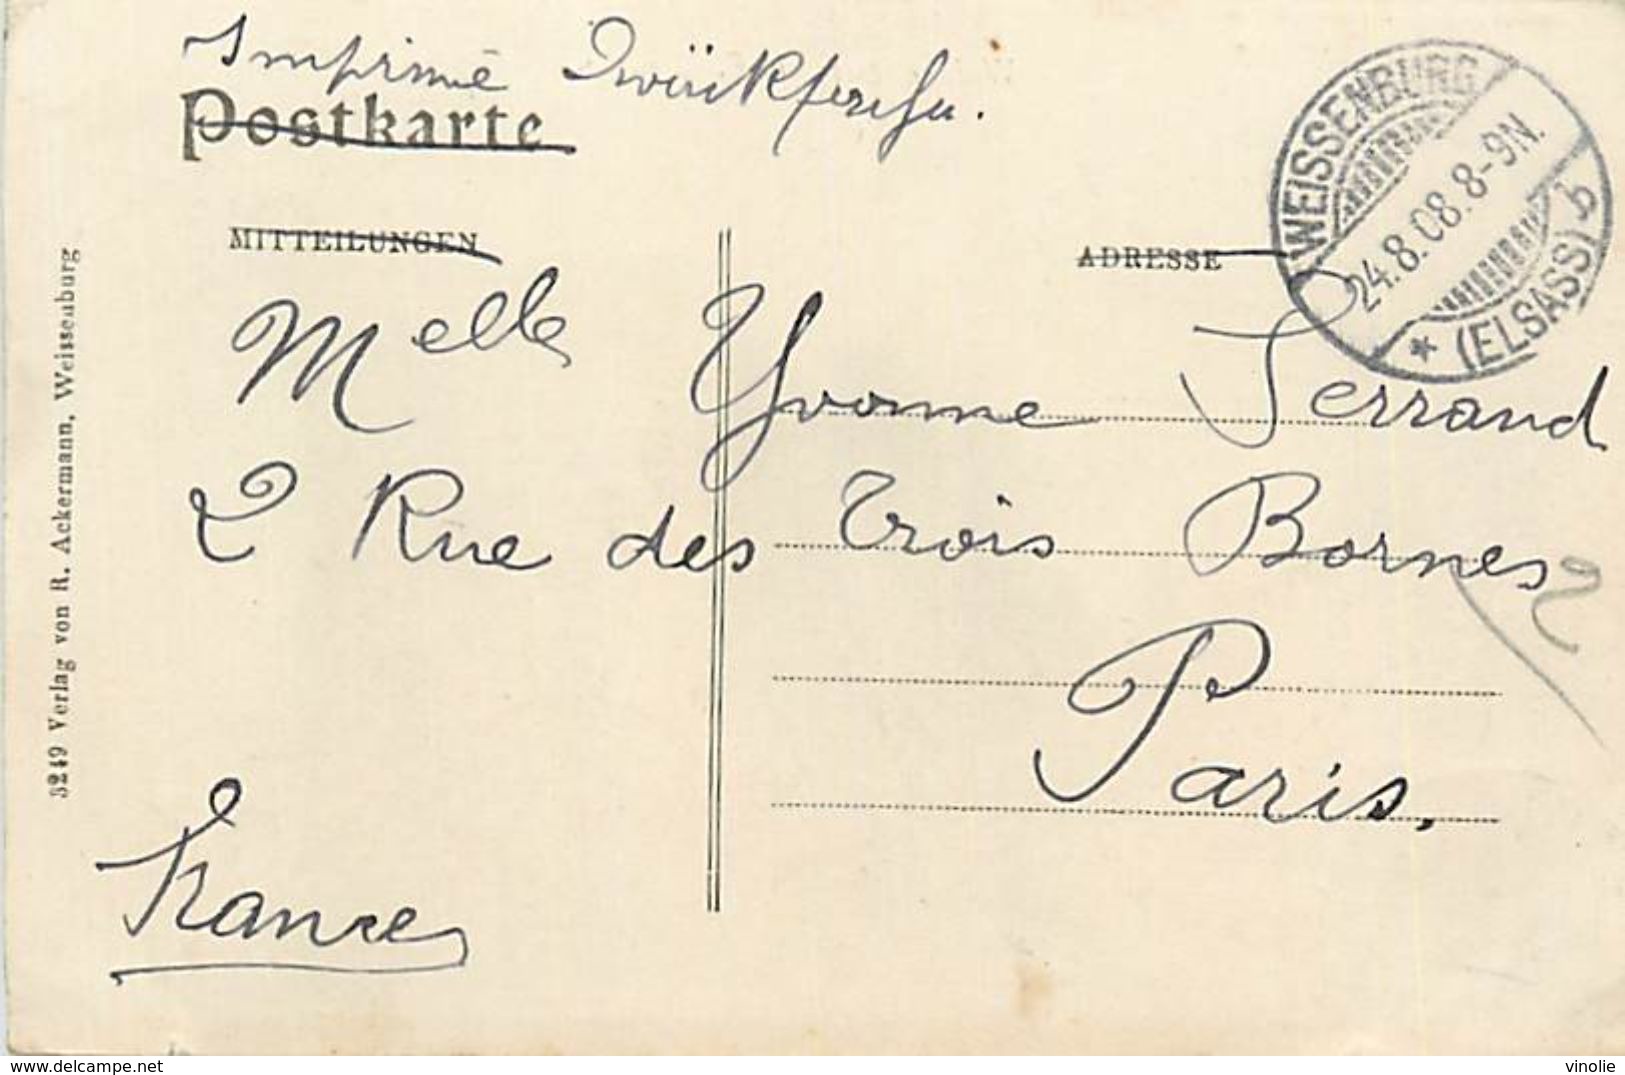 Imprimé
Postkarte
WEISSENBURG
24.8.08.8-9N.
* (ELSASS) b
MITTEILUNGEN
ADRESSE
Melle Yvonne Serrand
2 Rue des Trois Bornes
Paris.
France
3249 Verlag von R. Ackermann, Weissenburg
delcampe.net
vinolie